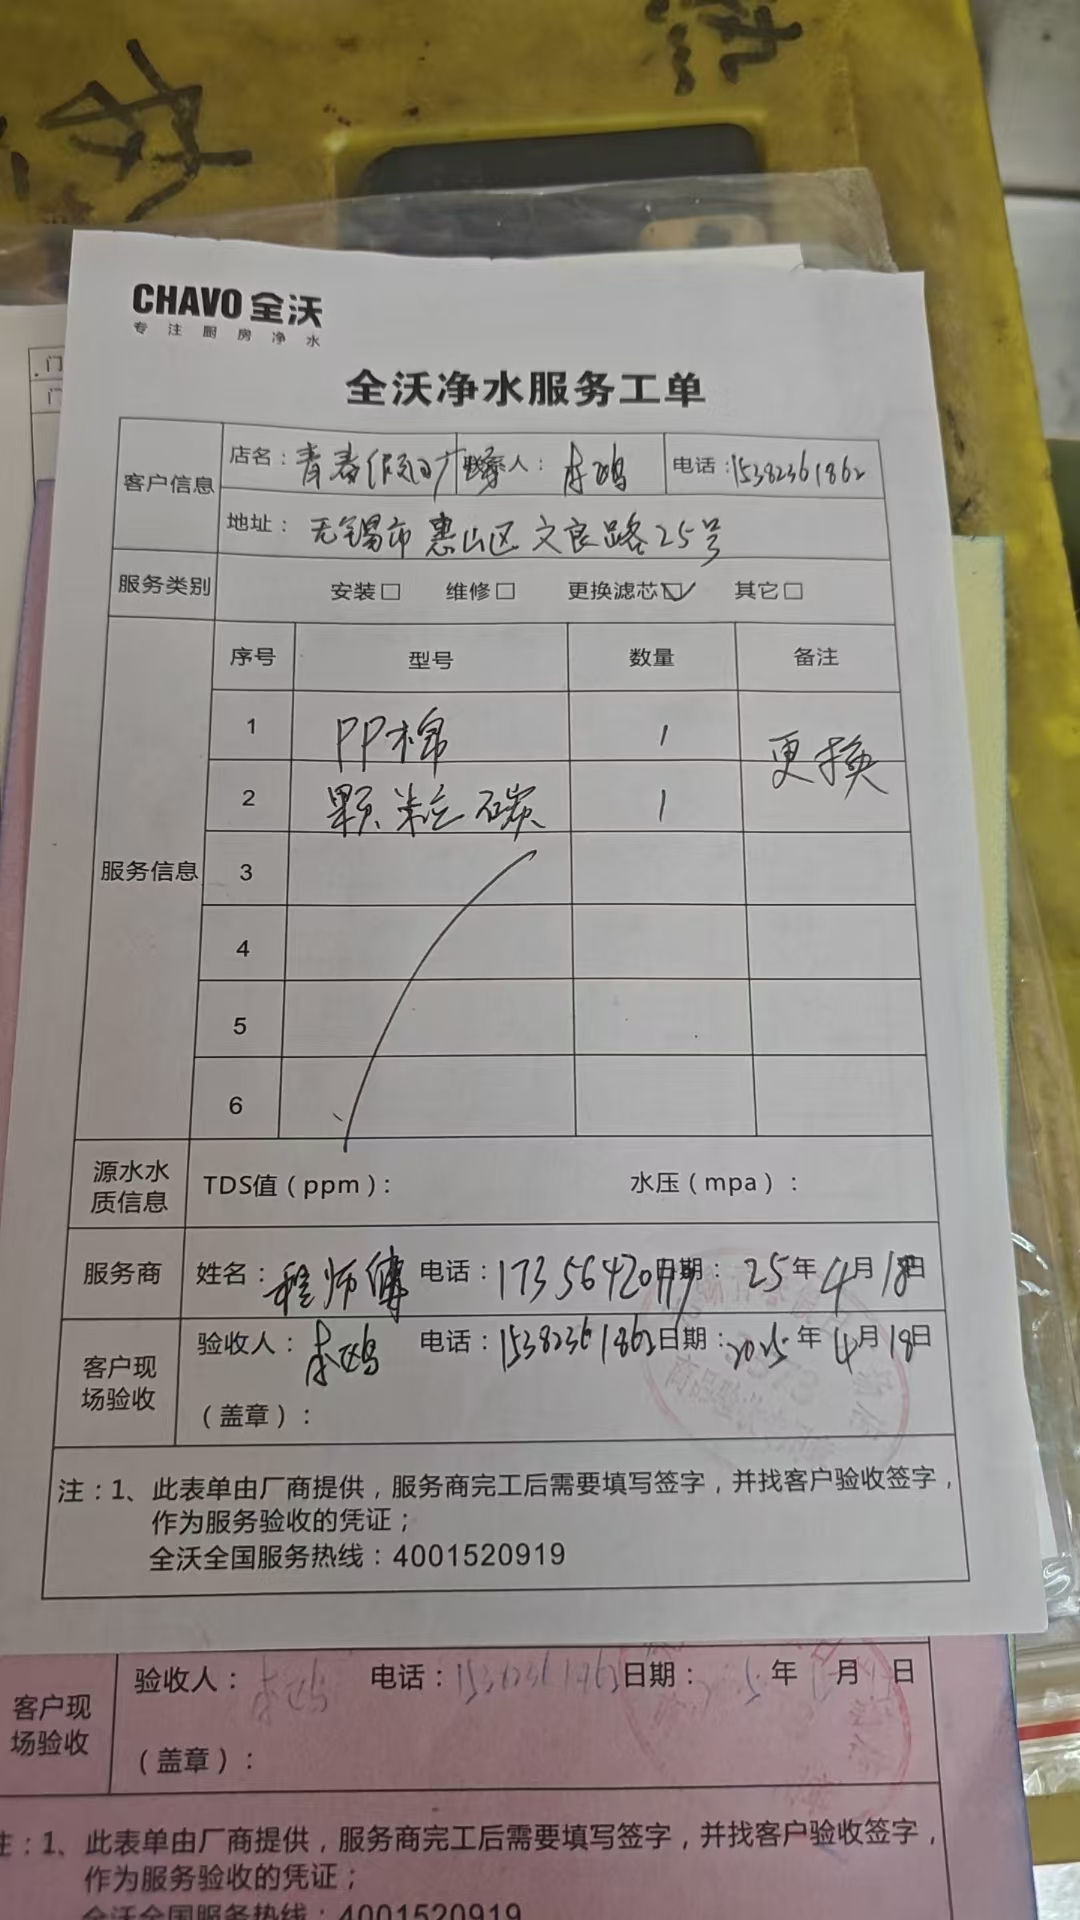 CHAVO 全沃
专注厨房净水
全沃净水服务工单
客户信息 店名：青春假日广 联系人：李鸣 电话：15382361862
地址：无锡市惠山区文良路25号
服务类别 安装□ 维修□ 更换滤芯☑ 其它□
服务信息 序号 型号 数量 备注
1 PP棉 1 更换
2 颗粒碳 1
3
4
5
6
源水水质信息 TDS值（ppm）： 水压（mpa）：
服务商 姓名：程师傅 电话：17356420 日期：25年4月18日
客户现场验收 验收人：李鸣 电话：15382361862 日期：2025年4月18日
（盖章）：
注：1、此表单由厂商提供，服务商完工后需要填写签字，并找客户验收签字，
作为服务验收的凭证；
全沃全国服务热线：4001520919
客户现场验收 验收人：李鸣 电话：15382361862 日期： 年 月 日
（盖章）：
注：1、此表单由厂商提供，服务商完工后需要填写签字，并找客户验收签字，
作为服务验收的凭证；
全沃全国服务热线：4001520919